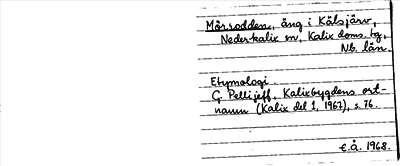 Mörsodden, äng i Kälsjärv,
Nederkalix sn, Kalix doms. tg,
Nb. län.
Etymologi
G. Pellijeff, Kalixbygdens ort-
namn (Kalix del 1, 1967), s. 76.
E.Å. 1968.